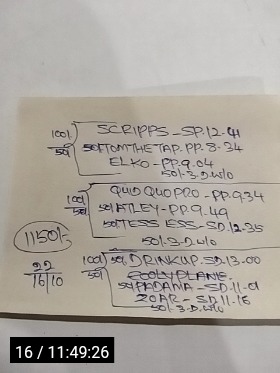 100/. SCRIPPS - SP.12.41
50/ 50/ TOMTHETAP. PP. 8.34
ELKO - PP.9.04
50/. 3. D. W/O
100/ QUID QUO PRO - PP.9.34
50/ 50/ ATLEY - PP.9.49
50/ TESS ESS - SD.12.35
50/. 3. D. W/O
1150/-
100/ 50/. DRINKUP. SD.13.00
22 50/ ECOLYPLANE.
16/10 50/ PADANA - SD.11-01
ZOAR - SD.11-16
50/. 3. D. W/O
16 / 11:49:26